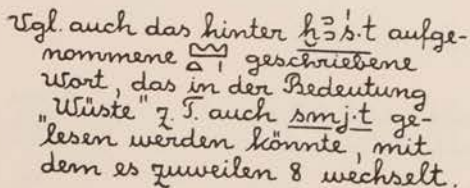 Vgl. auch das hinter ḫꜣś·t aufge-
nommene 𓈉𓏏𓏤 geschriebene
Wort, das in der Bedeutung
„Wüste" z. T. auch smj·t ge-
lesen werden könnte, mit
dem es zuweilen 8 wechselt.